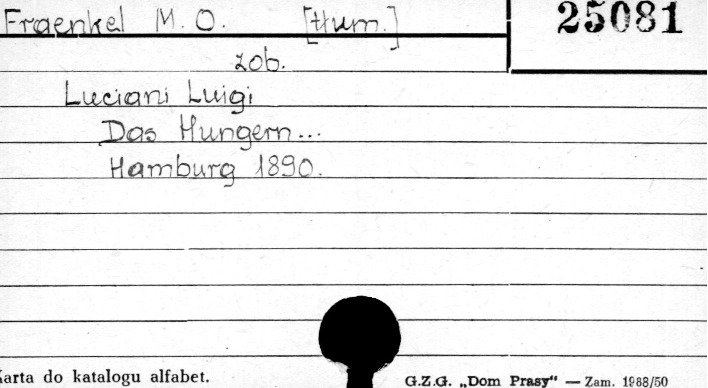 Fraenkel M. O. [tłum.] 25081
zob.
Luciani Luigi
Das Hungern...
Hamburg 1890.
Karta do katalogu alfabet. G.Z.G. „Dom Prasy" — Zam. 1988/50